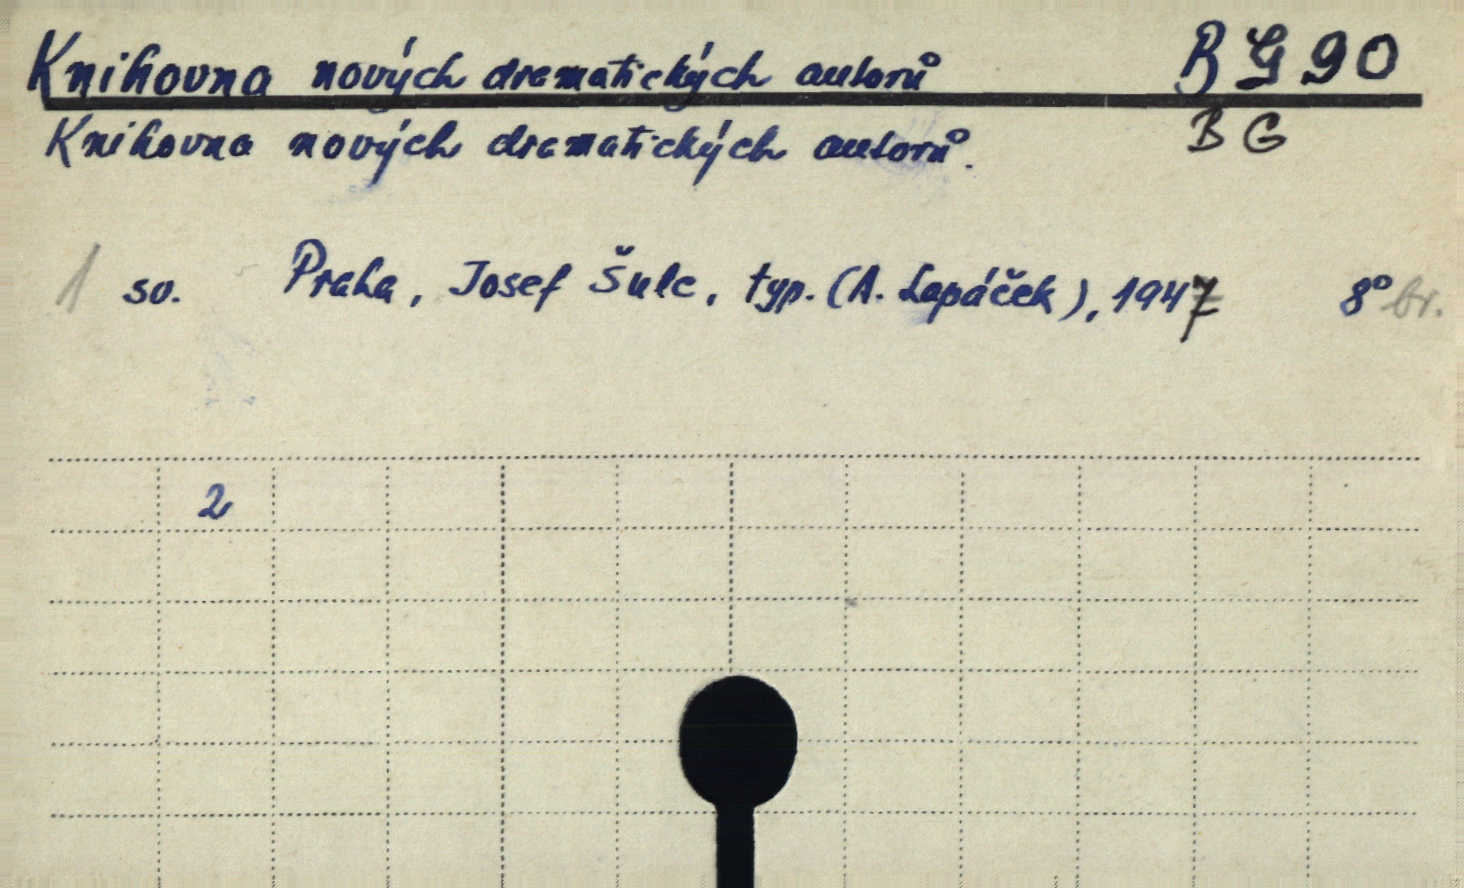 Knihovna nových dramatických autorů BG 90
Knihovna nových dramatických autorů. BG
1 sv. Praha, Josef Šulc, typ. (A. Lapáček), 1947 8° br.
2